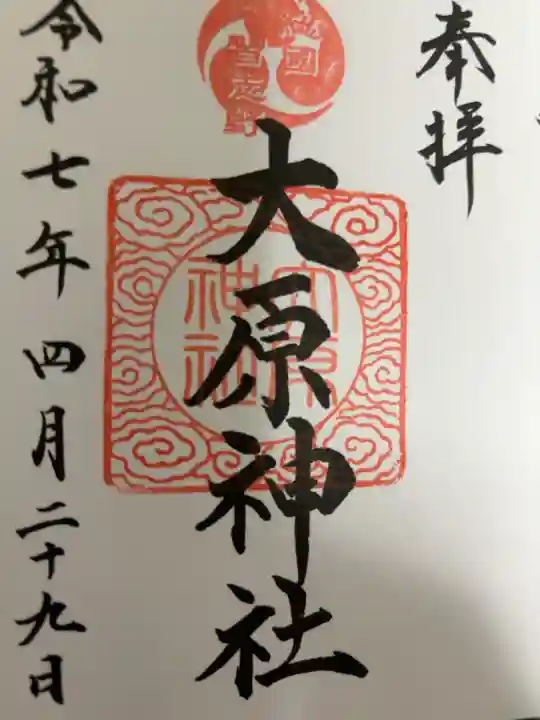 奉拝
總國
習志野
大原神社
大原
神社
令和七年四月二十九日